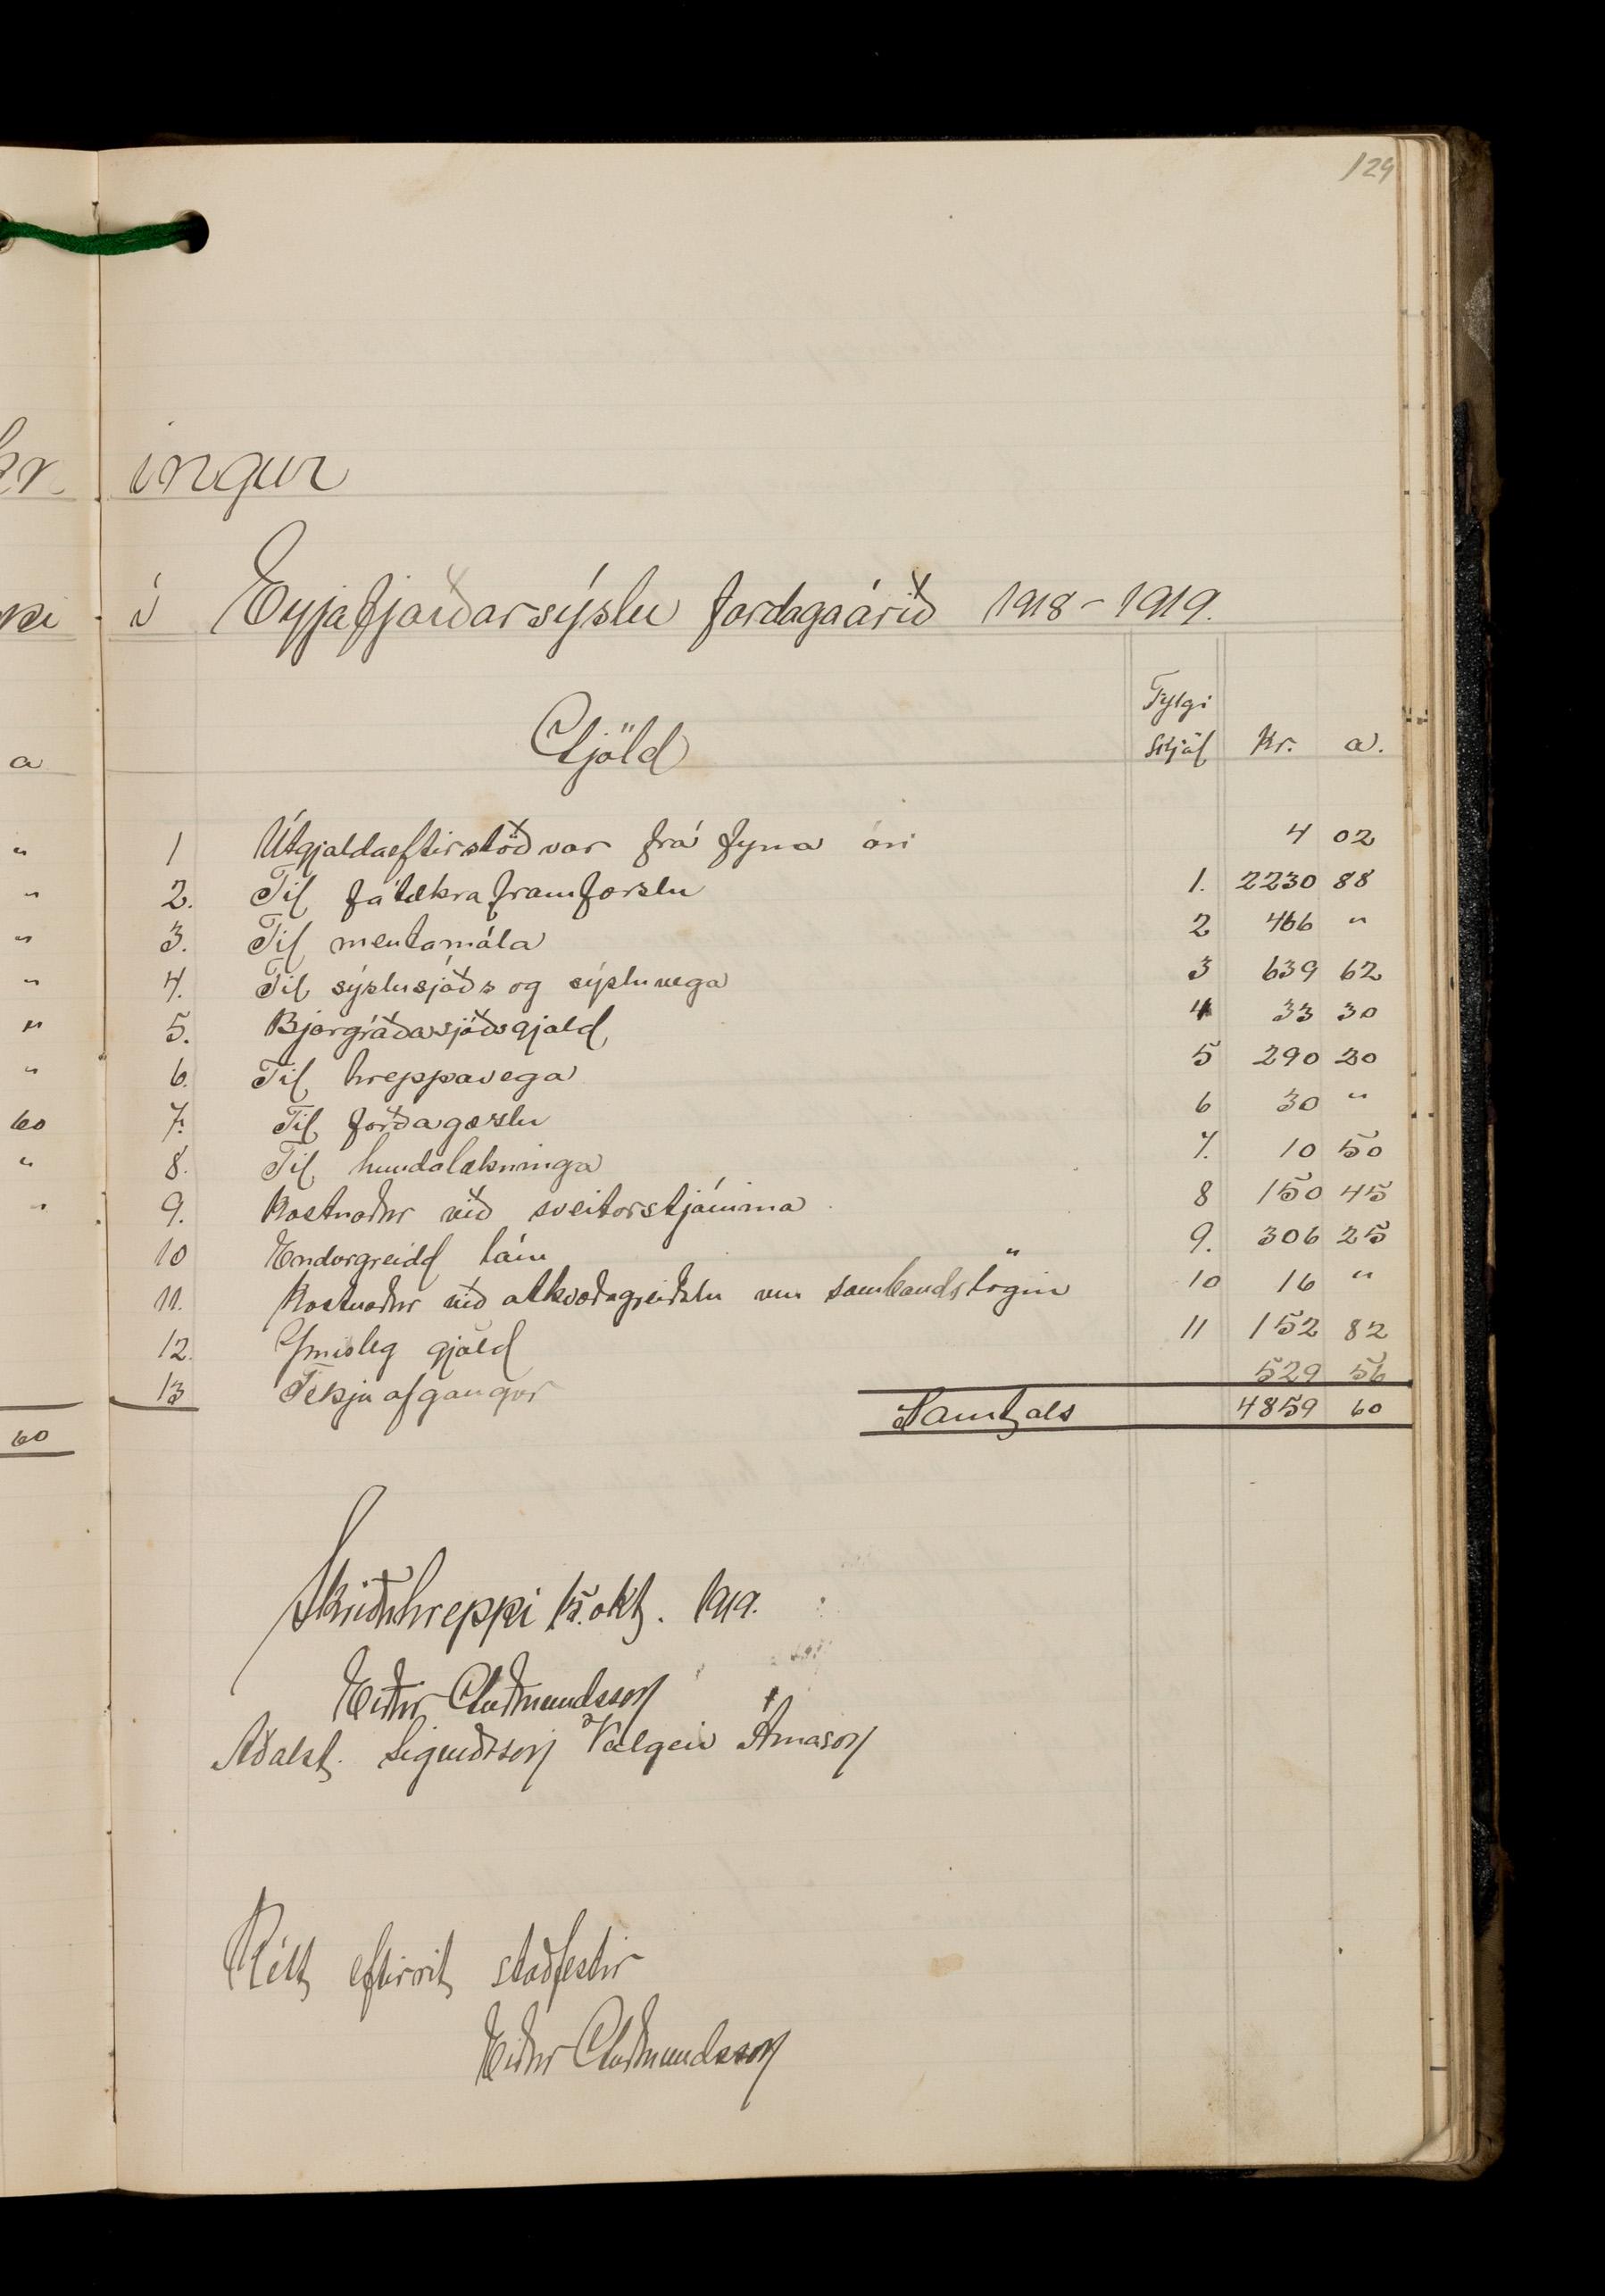 129
kr. ingur
ppi í Eyjafjarðarsýslu fardagaárið 1918-1919.
a Gjöld Fylgi skjöl Kr. a.
" 1 Útgjaldaeftirstöðvar frá fyrra ári 4 02
" 2. Til fátækraframfærslu 1. 2230 88
" 3. Til mentamála 2 466 "
" 4. Til sýslusjóðs og sýsluvega 3 639 62
" 5. Bjargráðasjóðsgjald 4 33 30
" 6. Til hreppavega 5 290 20
60 7. Til forðagæslu 6 30 "
" 8. Til hundalækninga 7. 10 50
" 9. Kostnaður við sveitarstjórnina 8 150 45
10 Endurgreidd lán 9. 306 25
11. Kostnaður við atkvæðagreiðslu um sambandslögin 10 16 "
12. Ýmisleg gjöld 11 152 82
13 Tekjuafgangur 529 56
60 Samtals 4859 60
Skriðuhreppi 15. okt. 1919.
Eiður Guðmundsson
Aðalst. Sigurðsson Valgeir Árnason
Rétt eftirrit staðfestir
Eiður Guðmundsson